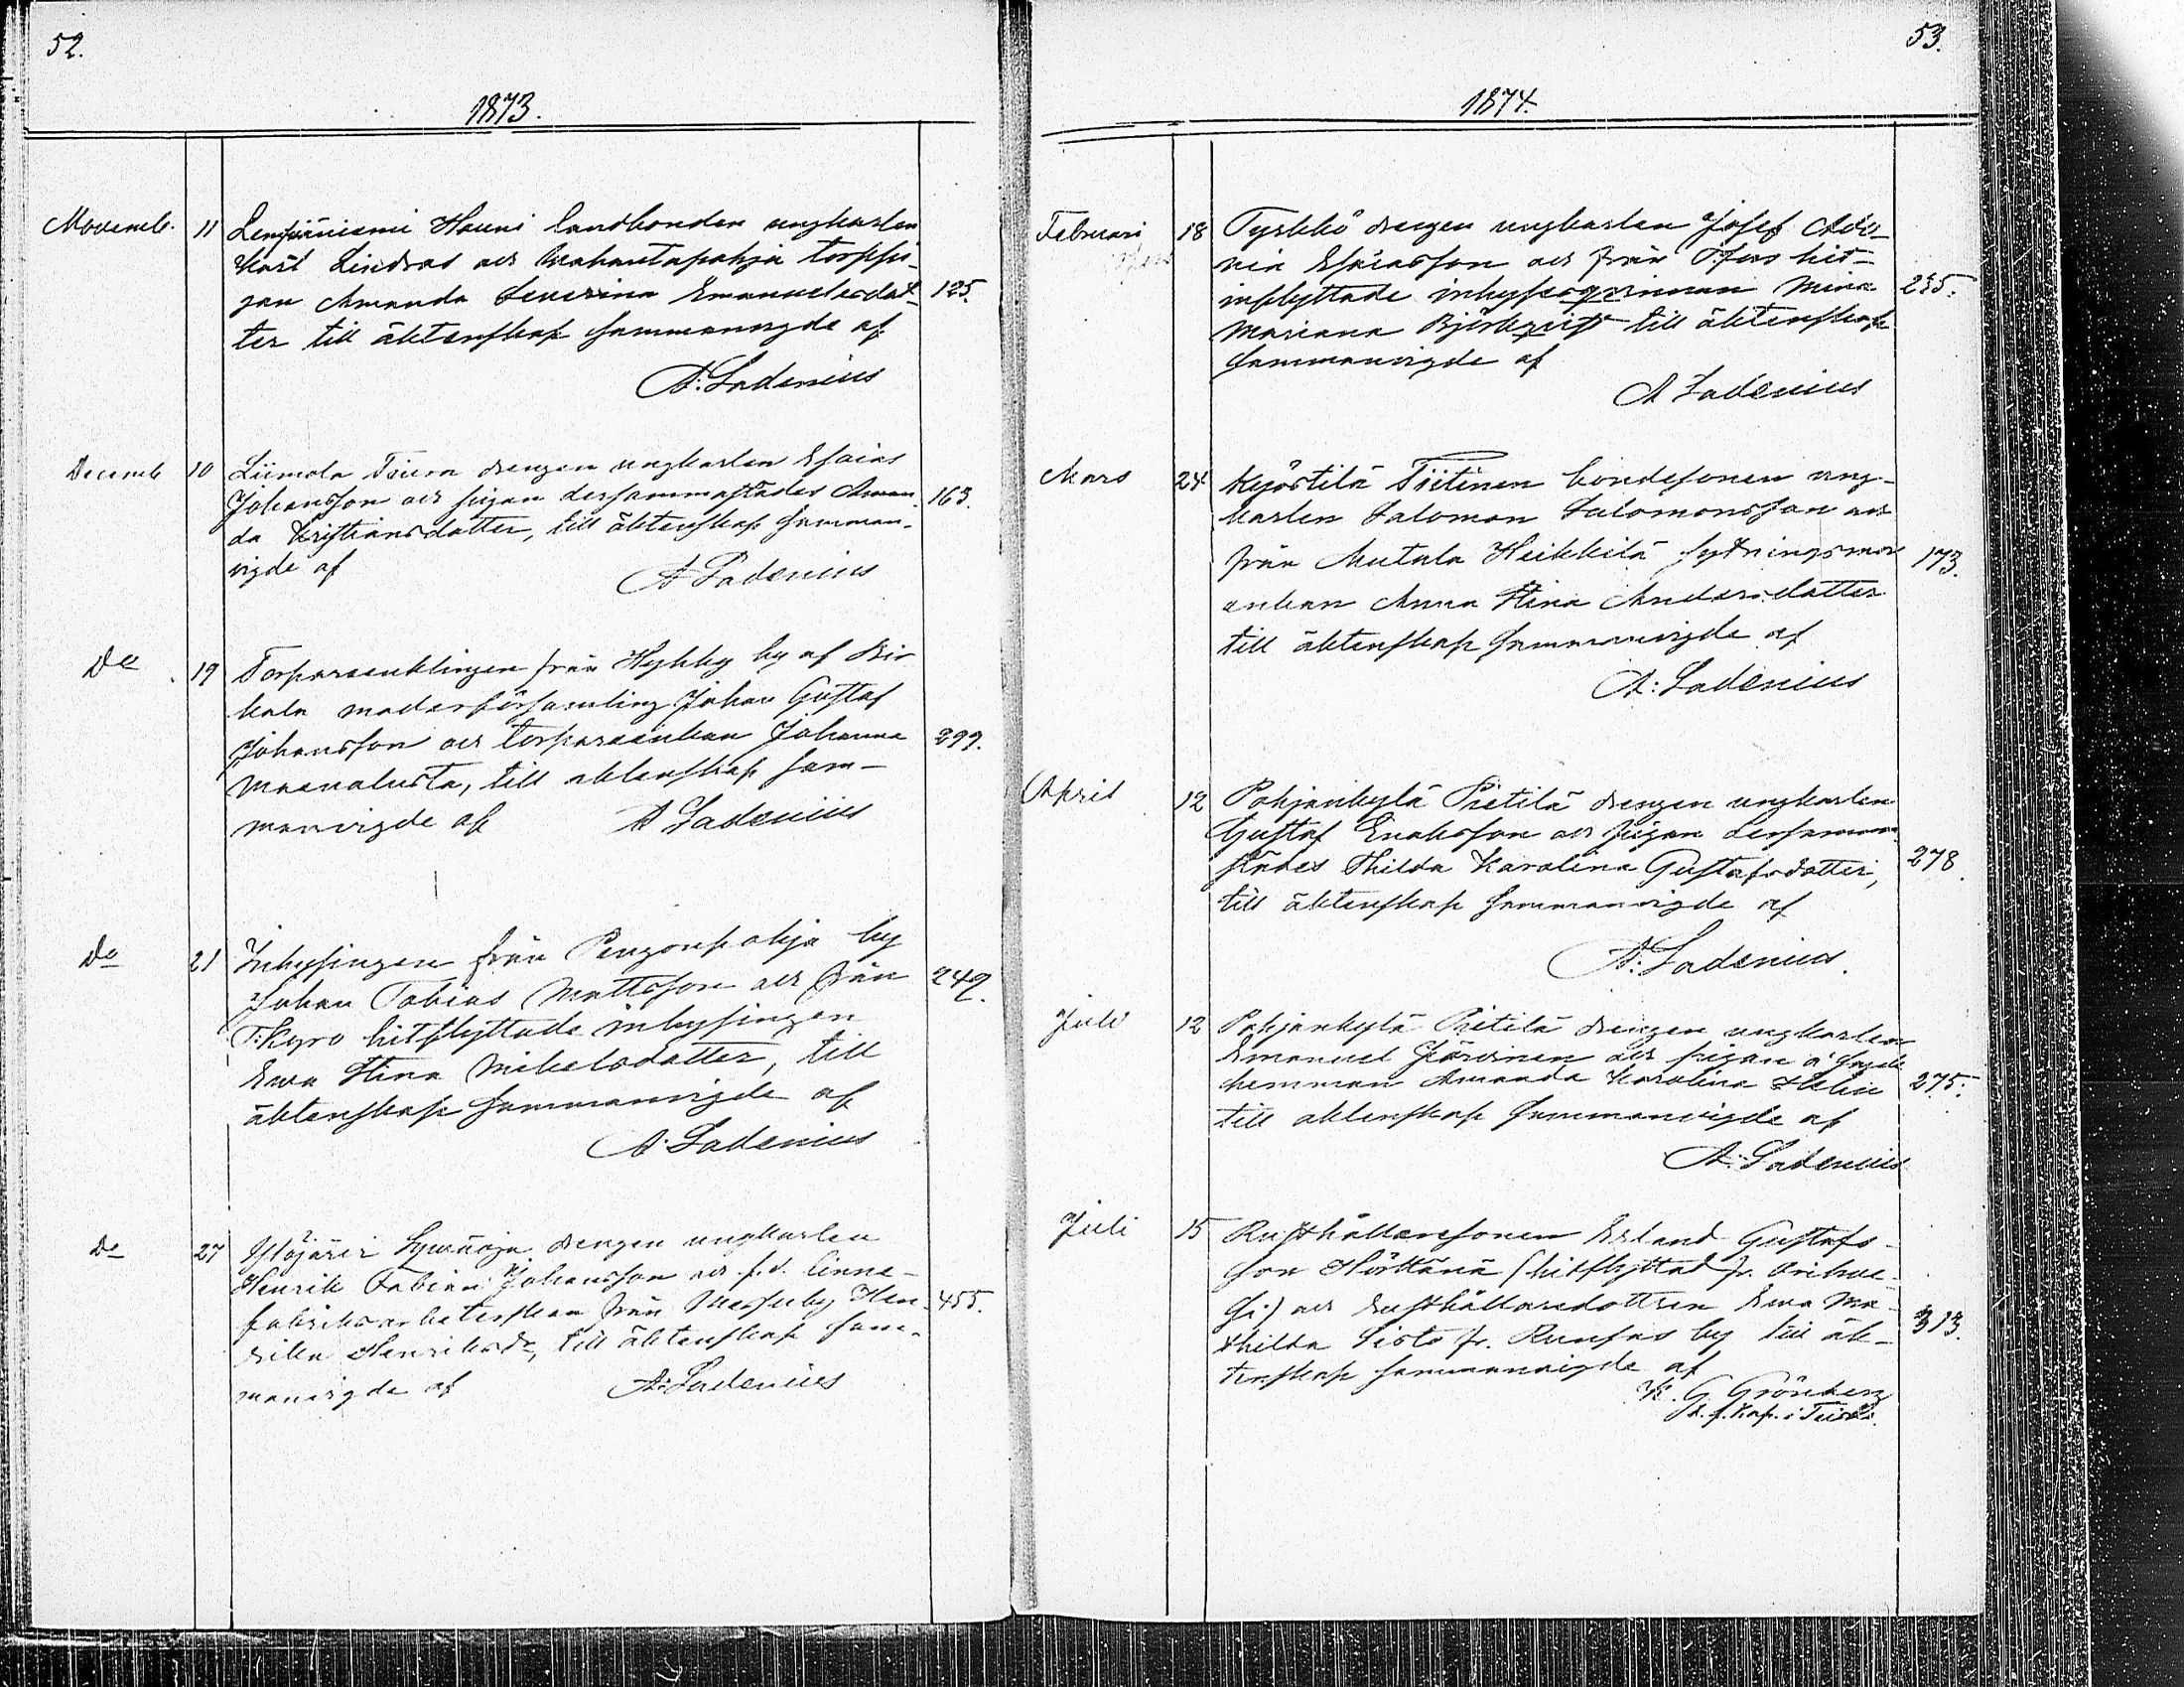 52.
1873.
Novemb. 11 Lempäniemi Hauni landbonden ungkarlen
Karl Lindroos och Wahantapohja torppi-
gan Amanda Severina Emanuelsdot- 125.
ter till äktenskap sammanvigde af
A: Ladenius
Decemb 10 Liimola Tiura drengen ungkarlen Esaias
Johansson och pigan dersammastädes Aman- 163.
da Kristiansdotter, till äktenskap samman-
vigde af
A Ladenius
Do 19 Torpareenklingen från Hyhky by af Bir
kala moderförsamling Johan Gustaf
Johansson och torpareenkan Johanna 299.
Maanalusta, till äktenskap sam-
manvigde af A Ladenius
Do 21 Inhysingen från Pengonpohja by
Johan Tobias Mattsson och från 249.
T.kyro hitflyttade inhysingen
Ewa Stina Mikelsdotter, till
äktenskap sammanvigde af
A. Ladenius
Do 27 Ylöjärvi drengen ungkarlen
Henrik Fabian Johansson och f.d. linne-
fabriksarbeterskan från Messuby Hen- 455.
rika Henriksdr, till äktenskap sam-
manvigde af A: Ladenius
53.
1874.
Februari 18 Tyrkkö drengen ungkarlen Josef Ado-
nia Esaiasson och från T.fors hit-
inflyttade inhysesqvinnan Mina 235.
Mariana Björkqvist till äktenskap
sammanvigde af
A Ladenius
Mars 24 Kyöstilä Tiitinen bondesonen ung-
karlen Salomon Salomonsson och
från Mutala Heikkilä sytningsmors 173.
enkan Anna Stina Andersdotter
till äktenskap sammanvigde af
A: Ladenius
April 12 Pohjankylä Pietilä drengen ungkarlen
Gustaf Enoksson och pigan dersamma
städes Hilda Karolina Gustafsdotter, 278.
till äktenskap sammanvigde af
A: Ladenius.
Juli 12 Pohjankylä Pietilä drengen ungkarlen
Emanuel Järvinen och pigan å sagde
hemman Amanda Karolina Helin 275.
till äktenskap sammanvigde af
A: Ladenius
Juli 15 Rusthållaresonen Erland Gustafs-
son Hörttänä (hitflyttad fr. Orihve-
si) och rusthållaredottren Ewa Ma-
thilda Sisto fr. by till äk- 313.
tenskap sammanvigde af
K. G Grönberg
i Teisko.